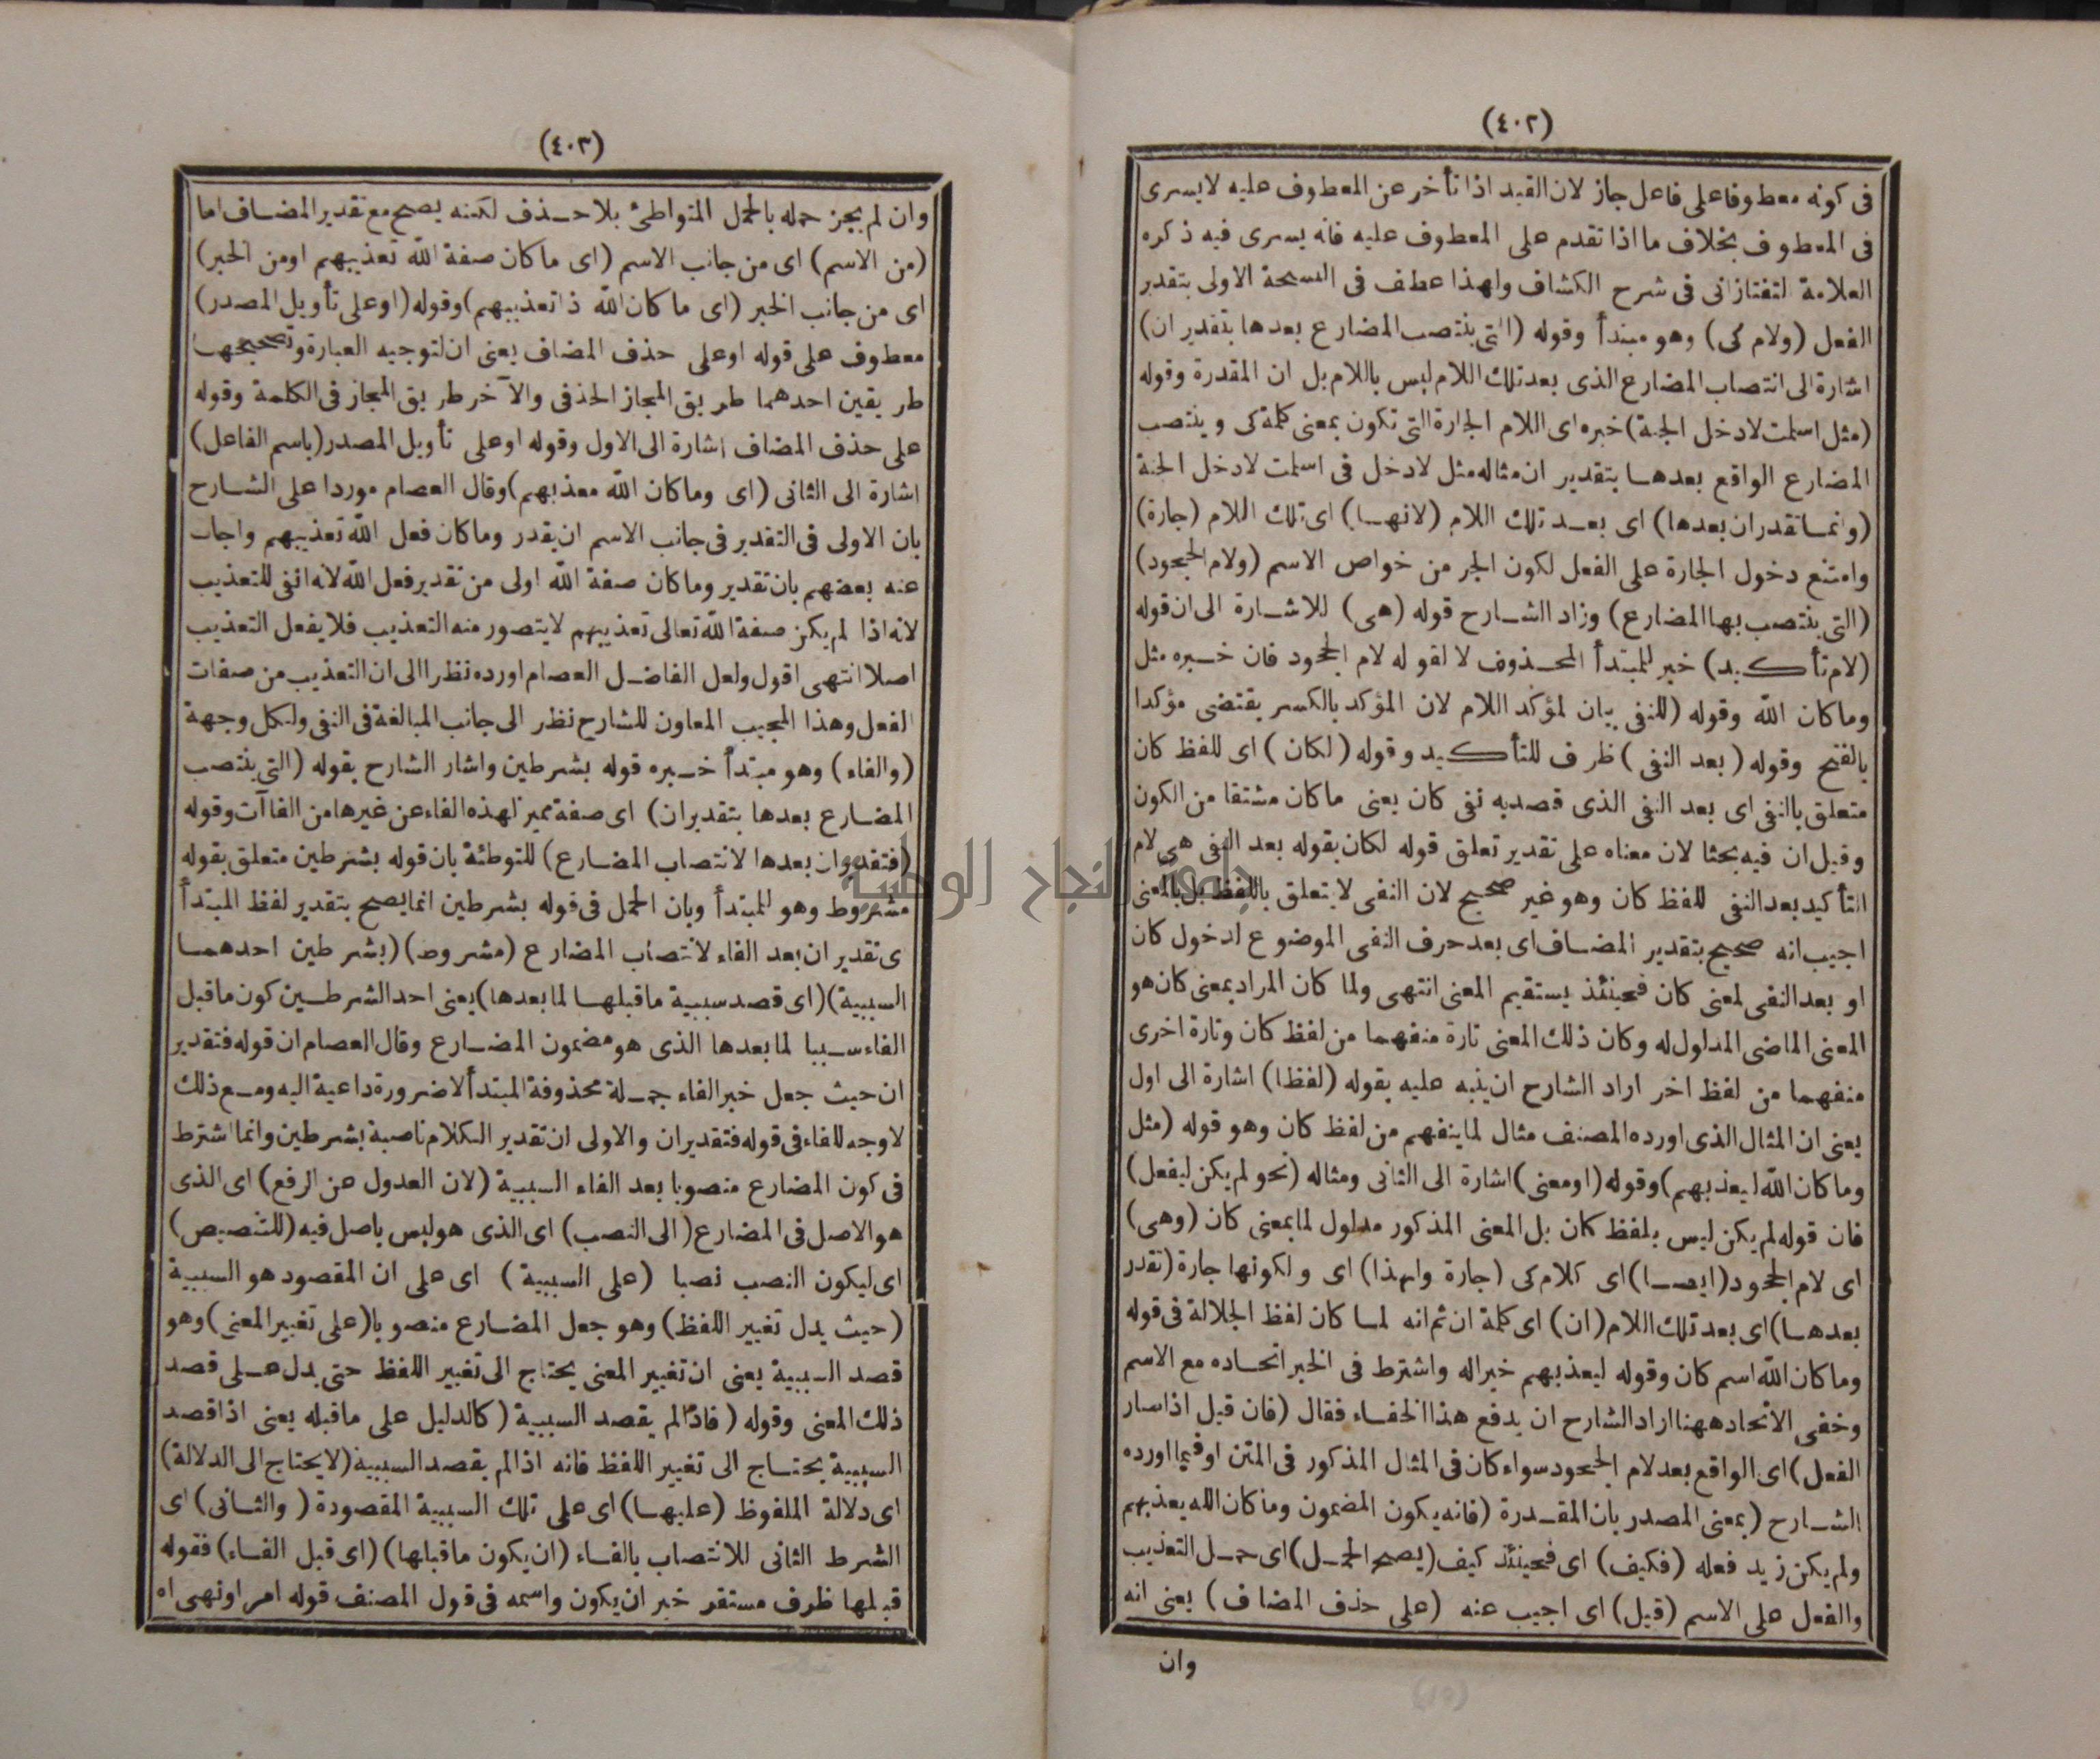 (٤٠٢)
فى كونه معطوفا على فاعل جاز لان القيد اذا تأخر عن المعطوف عليه لا يسرى
فى المعطوف بخلاف ما اذا تقدم على المعطوف عليه فانه يسرى فيه ذكره
العلامة التفتازانى فى شرح الكشاف ولهذا عطف فى النسخة الاولى بتقدير
الفعل (ولام كى) وهو مبتدأ وقوله (التى ينتصب المضارع بعدها بتقدير ان)
اشارة الى انتصاب المضارع الذى بعد تلك اللام ليس باللام بل ان المقدرة وقوله
(مثل اسلمت لادخل الجنة) خبره اى اللام الجارة التى تكون بمعنى كلمة كى وينتصب
المضارع الواقع بعدها بتقدير ان مثاله مثل لادخل فى اسلمت لادخل الجنة
(وانما تقدر ان بعدها) اى بعد تلك اللام (لانها) اى تلك اللام (جارة)
وامتنع دخول الجارة على الفعل لكون الجر من خواص الاسم (ولام الجحود)
(التى ينتصب بها المضارع) وزاد الشارح قوله (هى) للاشارة الى ان قوله
(لام تأكيد) خبر للمبتدأ المحذوف لا لقوله لام الجحود فان خبره مثل
وما كان الله وقوله (للنفى بيان لمؤكد اللام لان المؤكد بالكسر يقتضى مؤكدا
بالفتح وقوله (بعد النفى) ظرف للتأكيد وقوله (لكان) اى للفظ كان
متعلق بالنفى اى بعد النفى الذى قصد به نفى كان يعنى ما كان مشتقا من الكون
وقيل ان فيه بحثا لان معناه على تقدير تعلق قوله لكان بقوله بعد النفى هى لام
التأكيد بعد النفى للفظ كان وهو غير صحيح لان النفى لا يتعلق باللفظ بل بالمعنى
اجيب انه صحيح بتقدير المضاف اى بعد حرف النفى الموضوع لدخول كان
او بعد النفى لمعنى كان فحينئذ يستقيم المعنى انتهى ولما كان المراد بمعنى كان هو
المعنى الماضى المدلول له وكان ذلك المعنى تارة منفهما من لفظ كان وتارة اخرى
منفهما من لفظ اخر اراد الشارح ان ينبه عليه بقوله (لفظا) اشارة الى اول
يعنى ان المثال الذى اورده المصنف مثال لما ينفهم من لفظ كان وهو قوله (مثل
وما كان الله ليعذبهم) وقوله (او معنى) اشارة الى الثانى ومثاله (نحو لم يكن ليفعل)
فان قوله لم يكن ليس بلفظ كان بل المعنى المذكور مدلول لما بمعنى كان (وهى)
اى لام الجحود (ايضا) اى كلام كى (جارة ولهذا) اى ولكونها جارة (تقدر
بعدها) اى بعد تلك اللام (ان) اى كلمة ان ثم انه لما كان لفظ الجلالة فى قوله
وما كان الله اسم كان وقوله ليعذبهم خبرا له واشترط فى الخبر اتحاده مع الاسم
وخفى الاتحاد ههنا اراد الشارح ان يدفع هذا الخفاء فقال (فان قيل اذا سار
الفعل) اى الواقع بعد لام الجحود سواء كان فى المثال المذكور فى المتن او فيما اورده
الشارح (بمعنى المصدر بان المقدرة (فانه يكون المضمون وما كان الله يعذبهم
ولم يكن زيد فعله (فكيف) اى فحينئذ كيف (يصح الحمل) اى حمل التعذيب
والفعل على الاسم (قيل) اى اجيب عنه (على حذف المضاف) يعنى انه
وان
(٤٠٣)
وان لم يجز حمله بالحمل المتواطئ بلا حذف لكنه يصح مع تقدير المضاف اما
(من الاسم) اى من جانب الاسم (اى ما كان صفة الله تعذيبهم او من الخبر)
اى من جانب الخبر (اى ما كان الله ذا تعذيبهم) وقوله (او على تأويل المصدر)
معطوف على قوله او على حذف المضاف يعنى ان لتوجيه العبارة وتصحيحها
طريقين احدهما طريق المجاز الحذفى والآخر طريق المجاز فى الكلمة وقوله
على حذف المضاف اشارة الى الاول وقوله او على تأويل المصدر (باسم الفاعل)
اشارة الى الثانى (اى وما كان الله معذبهم) وقال العصام موردا على الشارح
بان الاولى فى التقدير فى جانب الاسم ان يقدر وما كان فعل الله تعذيبهم واجاب
عنه بعضهم بان تقدير وما كان صفة الله اولى من تقدير فعل الله لانه انفى للتعذيب
لانه اذا لم يكن صفة الله تعالى تعذيبهم لا يتصور منه التعذيب فلا يفعل التعذيب
اصلا انتهى اقول ولعل الفاضل العصام اورده نظرا الى ان التعذيب من صفات
الفعل وهذا المجيب المعاون للشارح نظر الى جانب المبالغة فى النفى ولكل وجهة
(والفاء) وهو مبتدأ خبره قوله بشرطين واشار الشارح بقوله (التى ينتصب
المضارع بعدها بتقدير ان) اى صفة تميز لهذه الفاء عن غيرها من الفاآت وقوله
(فتقدير ان بعدها لانتصاب المضارع) للتوطئة بان قوله بشرطين متعلق بقوله
مشروط وهو للمبتدأ وبان الحمل فى قوله بشرطين انما يصح بتقدير لفظ المبتدأ
ى تقدير ان بعد الفاء لانتصاب المضارع (مشروط) (بشرطين احدهما
السببية) (اى قصد سببية ما قبلها لما بعدها) يعنى احد الشرطين كون ما قبل
الفاء سببا لما بعدها الذى هو مضمون المضارع وقال العصام ان قوله فتقدير
ان حيث جعل خبر الفاء جملة محذوفة المبتدأ لا ضرورة داعية اليه ومع ذلك
لا وجه للفاء فى قوله فتقدير ان والاولى ان تقدير الكلام ناصبة بشرطين وانما اشترط
فى كون المضارع منصوبا بعد الفاء السببية (لان العدول عن الرفع) اى الذى
هو الاصل فى المضارع (الى النصب) اى الذى هو ليس باصل فيه (للتنصيص)
اى ليكون النصب نصبا (على السببية) اى على ان المقصود هو السببية
(حيث يدل تغيير اللفظ) وهو جعل المضارع منصوبا (على تغيير المعنى) وهو
قصد السببية يعنى ان تغيير المعنى يحتاج الى تغيير اللفظ حتى يدل على قصد
ذلك المعنى وقوله (فاذا لم يقصد السببية (كالدليل على ما قبله يعنى اذا قصد
السببية يحتاج الى تغيير اللفظ فانه اذا لم يقصد السببية (لا يحتاج الى الدلالة)
اى دلالة الملفوظ (عليها) اى على تلك السببية المقصودة (والثانى) اى
الشرط الثانى للانتصاب بالفاء (ان يكون ما قبلها) (اى قبل الفاء) فقوله
قبلها ظرف مستقر خبر ان يكون واسمه فى قول المصنف قوله امر او نهى اه
جامعة النجاح الوطنية